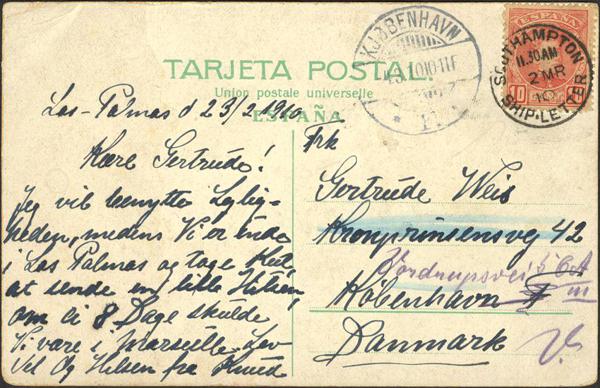 KJØBENHAVN
ESPAÑA
SOUTHAMPTON
11.30AM
2 MR
10
SHIP-LETTER
10
TARJETA POSTAL
Union postale universelle
ESPAÑA
Las-Palmas d 23/2 1910
Kære Gertrude!
Jeg vil benytte Lejlig-
heden, medens Vi er endnu
i Las Palmas og tage
at sende en lille Hilsen!
om ei 8 Dage skulde
Vi være i Marseille. Lev
Vel Og Hilsen fra Knud
Frk
Gertrude Weis
Kronprinsensveg 42
Vordrupsvei 56A
III
København F
Danmark